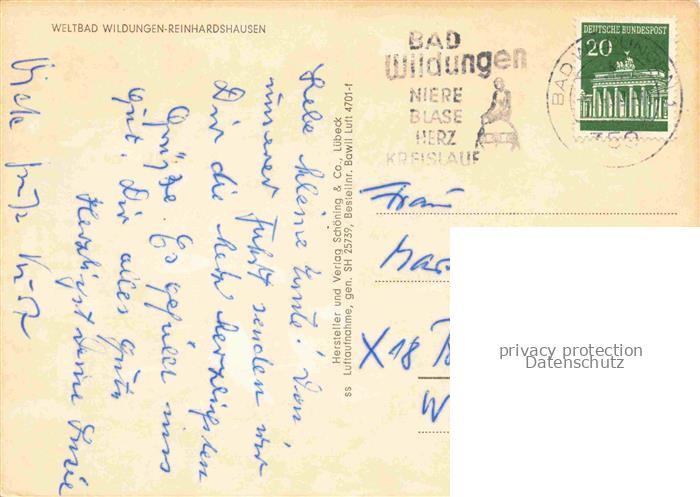 WELTBAD WILDUNGEN-REINHARDSHAUSEN
Liebe kleine Tante! Von
unserer Fahrt senden wir
Dir die herzlichsten
Grüße. Es gefällt uns
gut. Dir alles Gute
Herzlichst Deine
Viele Grüße
Hersteller und Verlag Schöning & Co., Lübeck
ss Luftaufnahme, gen. SH 25739, Bestellnr. Bawil Luft 4701-f
BAD
Wildungen
NIERE
BLASE
HERZ
KREISLAUF
DEUTSCHE BUNDESPOST
20
BAD WILDUNGEN 1
359
Frau
X18
W
privacy protection
Datenschutz